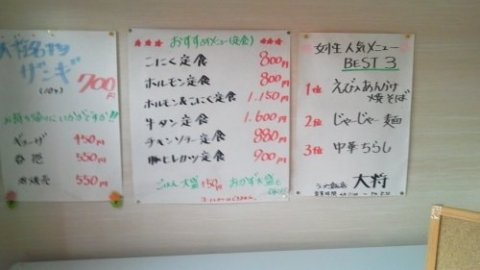 ザンギ
700円
お持ち帰りにいかがですか!!
450円
550円
550円
おすすめメニュー(定食)
こにく定食 800円
ホルモン定食 800円
ホルモン&こにく定食 1.150円
牛タン定食 1.600円
チキンソテー定食 880円
豚ヒレカツ定食 900円
ごはん大盛150円 おかず大盛も
女性人気メニュー
BEST 3
1位 えびあんかけ
焼そば
2位 じゃーじゃー麺
3位 中華ちらし
大将
営業時間